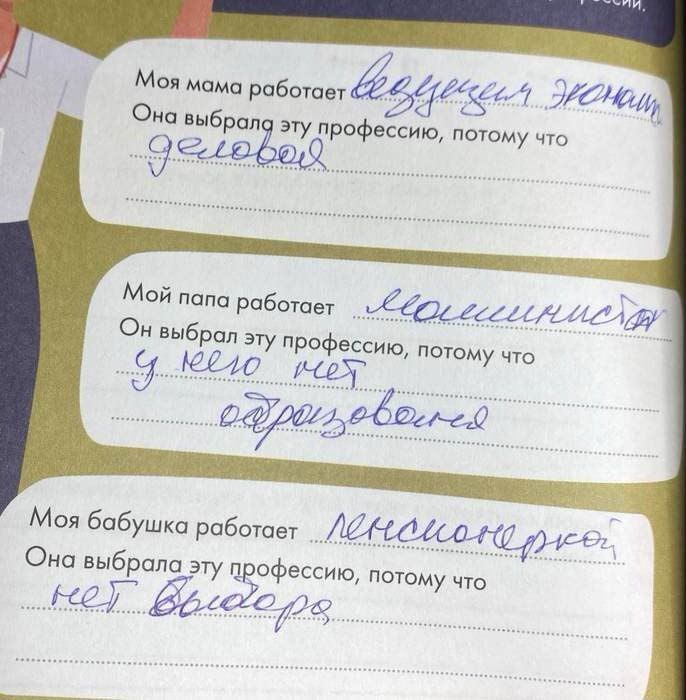 Моя мама работает ведущим эконом
Она выбрала эту профессию, потому что
деловая
Мой папа работает машинистом
Он выбрал эту профессию, потому что
у него нет
образования
Моя бабушка работает пенсионеркой
Она выбрала эту профессию, потому что
нет выбора